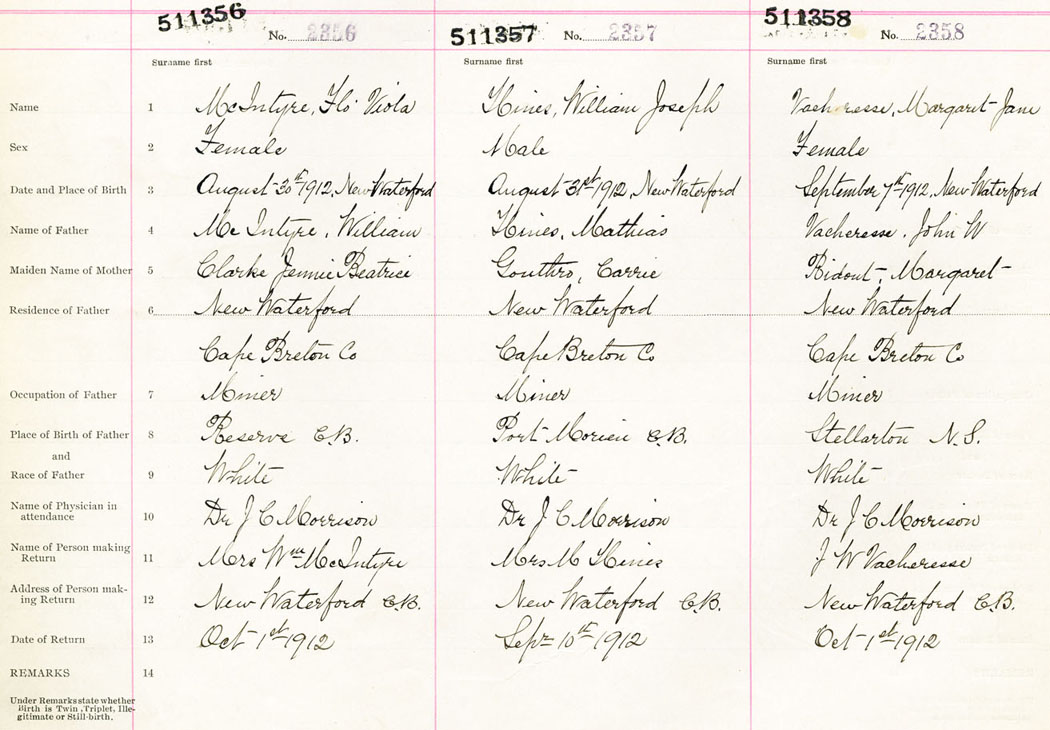 511356 No. 2356 511357 No. 2357 511358 No. 2358
Surname first Surname first Surname first
Name 1 McIntyre, Flo Viola Hines, William Joseph Vacheresse, Margaret Jane
Sex 2 Female Male Female
Date and Place of Birth 3 August 30th 1912, New Waterford August 31st 1912, New Waterford September 7th 1912, New Waterford
Name of Father 4 Mc Intyre, William Hines, Mathias Vacheresse, John W
Maiden Name of Mother 5 Clarke Jennie Beatrice Gouthro, Carrie Ridout, Margaret
Residence of Father 6 New Waterford New Waterford New Waterford
Cape Breton Co Cape Breton Co Cape Breton Co
Occupation of Father 7 Miner Miner Miner
Place of Birth of Father 8 Reserve C.B. Port Morien C.B. Stellarton N.S.
and
Race of Father 9 White White White
Name of Physician in
attendance 10 Dr J C Morrison Dr J C Morrison Dr J C Morrison
Name of Person making
Return 11 Mrs Wm McIntyre Mrs M Hines J W Vacheresse
Address of Person mak-
ing Return 12 New Waterford C.B. New Waterford C.B. New Waterford C.B.
Date of Return 13 Oct 1st 1912 Sept 10th 1912 Oct 1st 1912
REMARKS 14
Under Remarks state whether
Birth is Twin, Triplet, Ille-
gitimate or Still-birth.